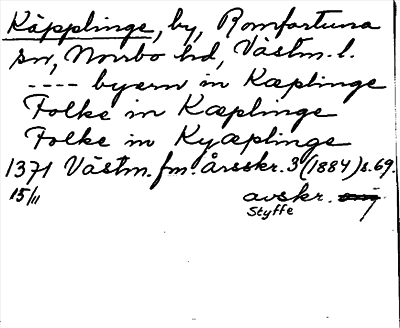 Käpplinge, by, Romfartuna
sn, Norrbo hd, Västm. l.
---- byærn in Kæplinge
Folke in Kæplinge
Folke in Kyæplinge
1371 Västm. fm. årsskr. 3 (1884) s. 69.
15/11 avskr. orig
Styffe